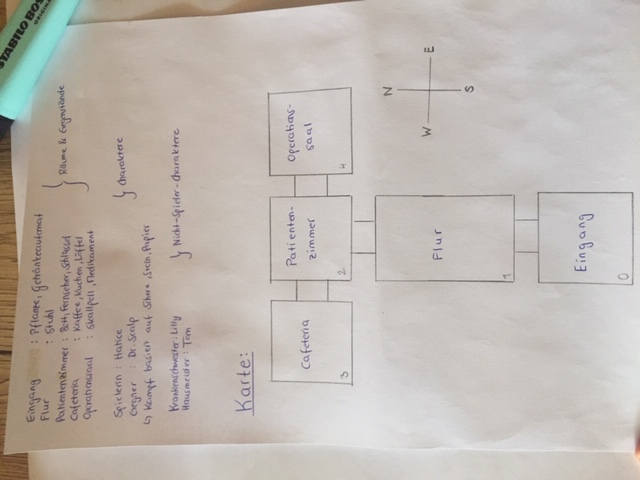 Eingang : Pflanze, Getränkeautomat
Flur : Stuhl
Patientenzimmer : Bett, Fernseher, Schlüssel
Cafeteria : Kaffee, Kuchen, Löffel
Operationssaal : Skallpell, Medikament
Räume & Gegenstände
Spielerin : Hatice
Gegner : Dr. Scalp
↳ Kampf basiert auf Schere, Stein, Papier
Charaktere
Krankenschwester : Lilly
Hausmeister : Tom
Nicht-Spieler-Charaktere
Karte:
Cafeteria
3
Patienten-
zimmer
2
Operations-
saal
4
Flur
1
N
W
E
S
Eingang
0
STABILO BOSS
ORIGINAL